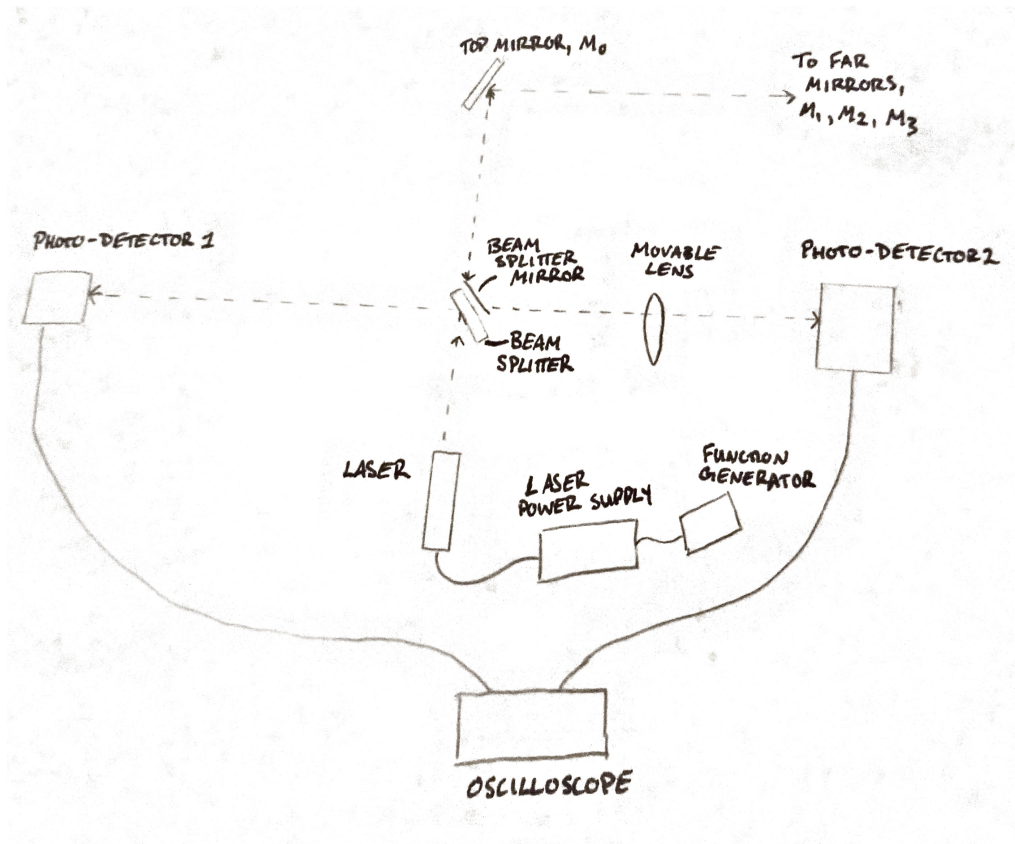 TOP MIRROR, M₀
TO FAR
MIRRORS,
M₁, M₂, M₃
PHOTO-DETECTOR 1
BEAM
SPLITTER
MIRROR
MOVABLE
LENS
PHOTO-DETECTOR 2
BEAM
SPLITTER
LASER
LASER
POWER SUPPLY
FUNCTION
GENERATOR
OSCILLOSCOPE